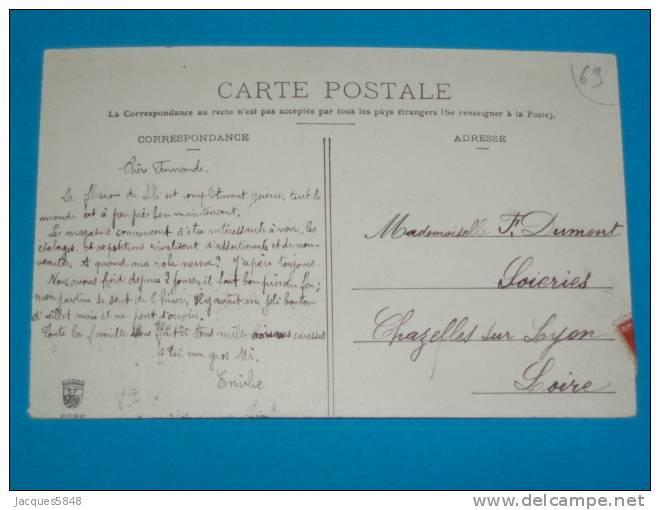 69
CARTE POSTALE
La Correspondance au recto n'est pas acceptée par tous les pays étrangers (Se renseigner à la Poste).
CORRESPONDANCE
ADRESSE
Chère Fernande.
La fluxion de Lili est complètement guérie, tout le
monde est à peu près bien maintenant,
Les magasins commencent à être intéressants à voir, les
étalages et expositions rivalisent d'assortiments et de nou-
veautés. A quand ma robe neuve? J'espère toujours.
Nous avons froid depuis 2 jours, il fait bon près du feu;
mon jardin se sent de l'hiver, il y avait un joli bouton
d'œillet mais il ne peut s'ouvrir.
Toute la famille vous fait à tous mille caresses
à toi un gros Mi.
Emilie
Mademoiselle F. Dumont
Soieries
Chazelles sur Lyon
Loire
Jacques5848
delcampe.net